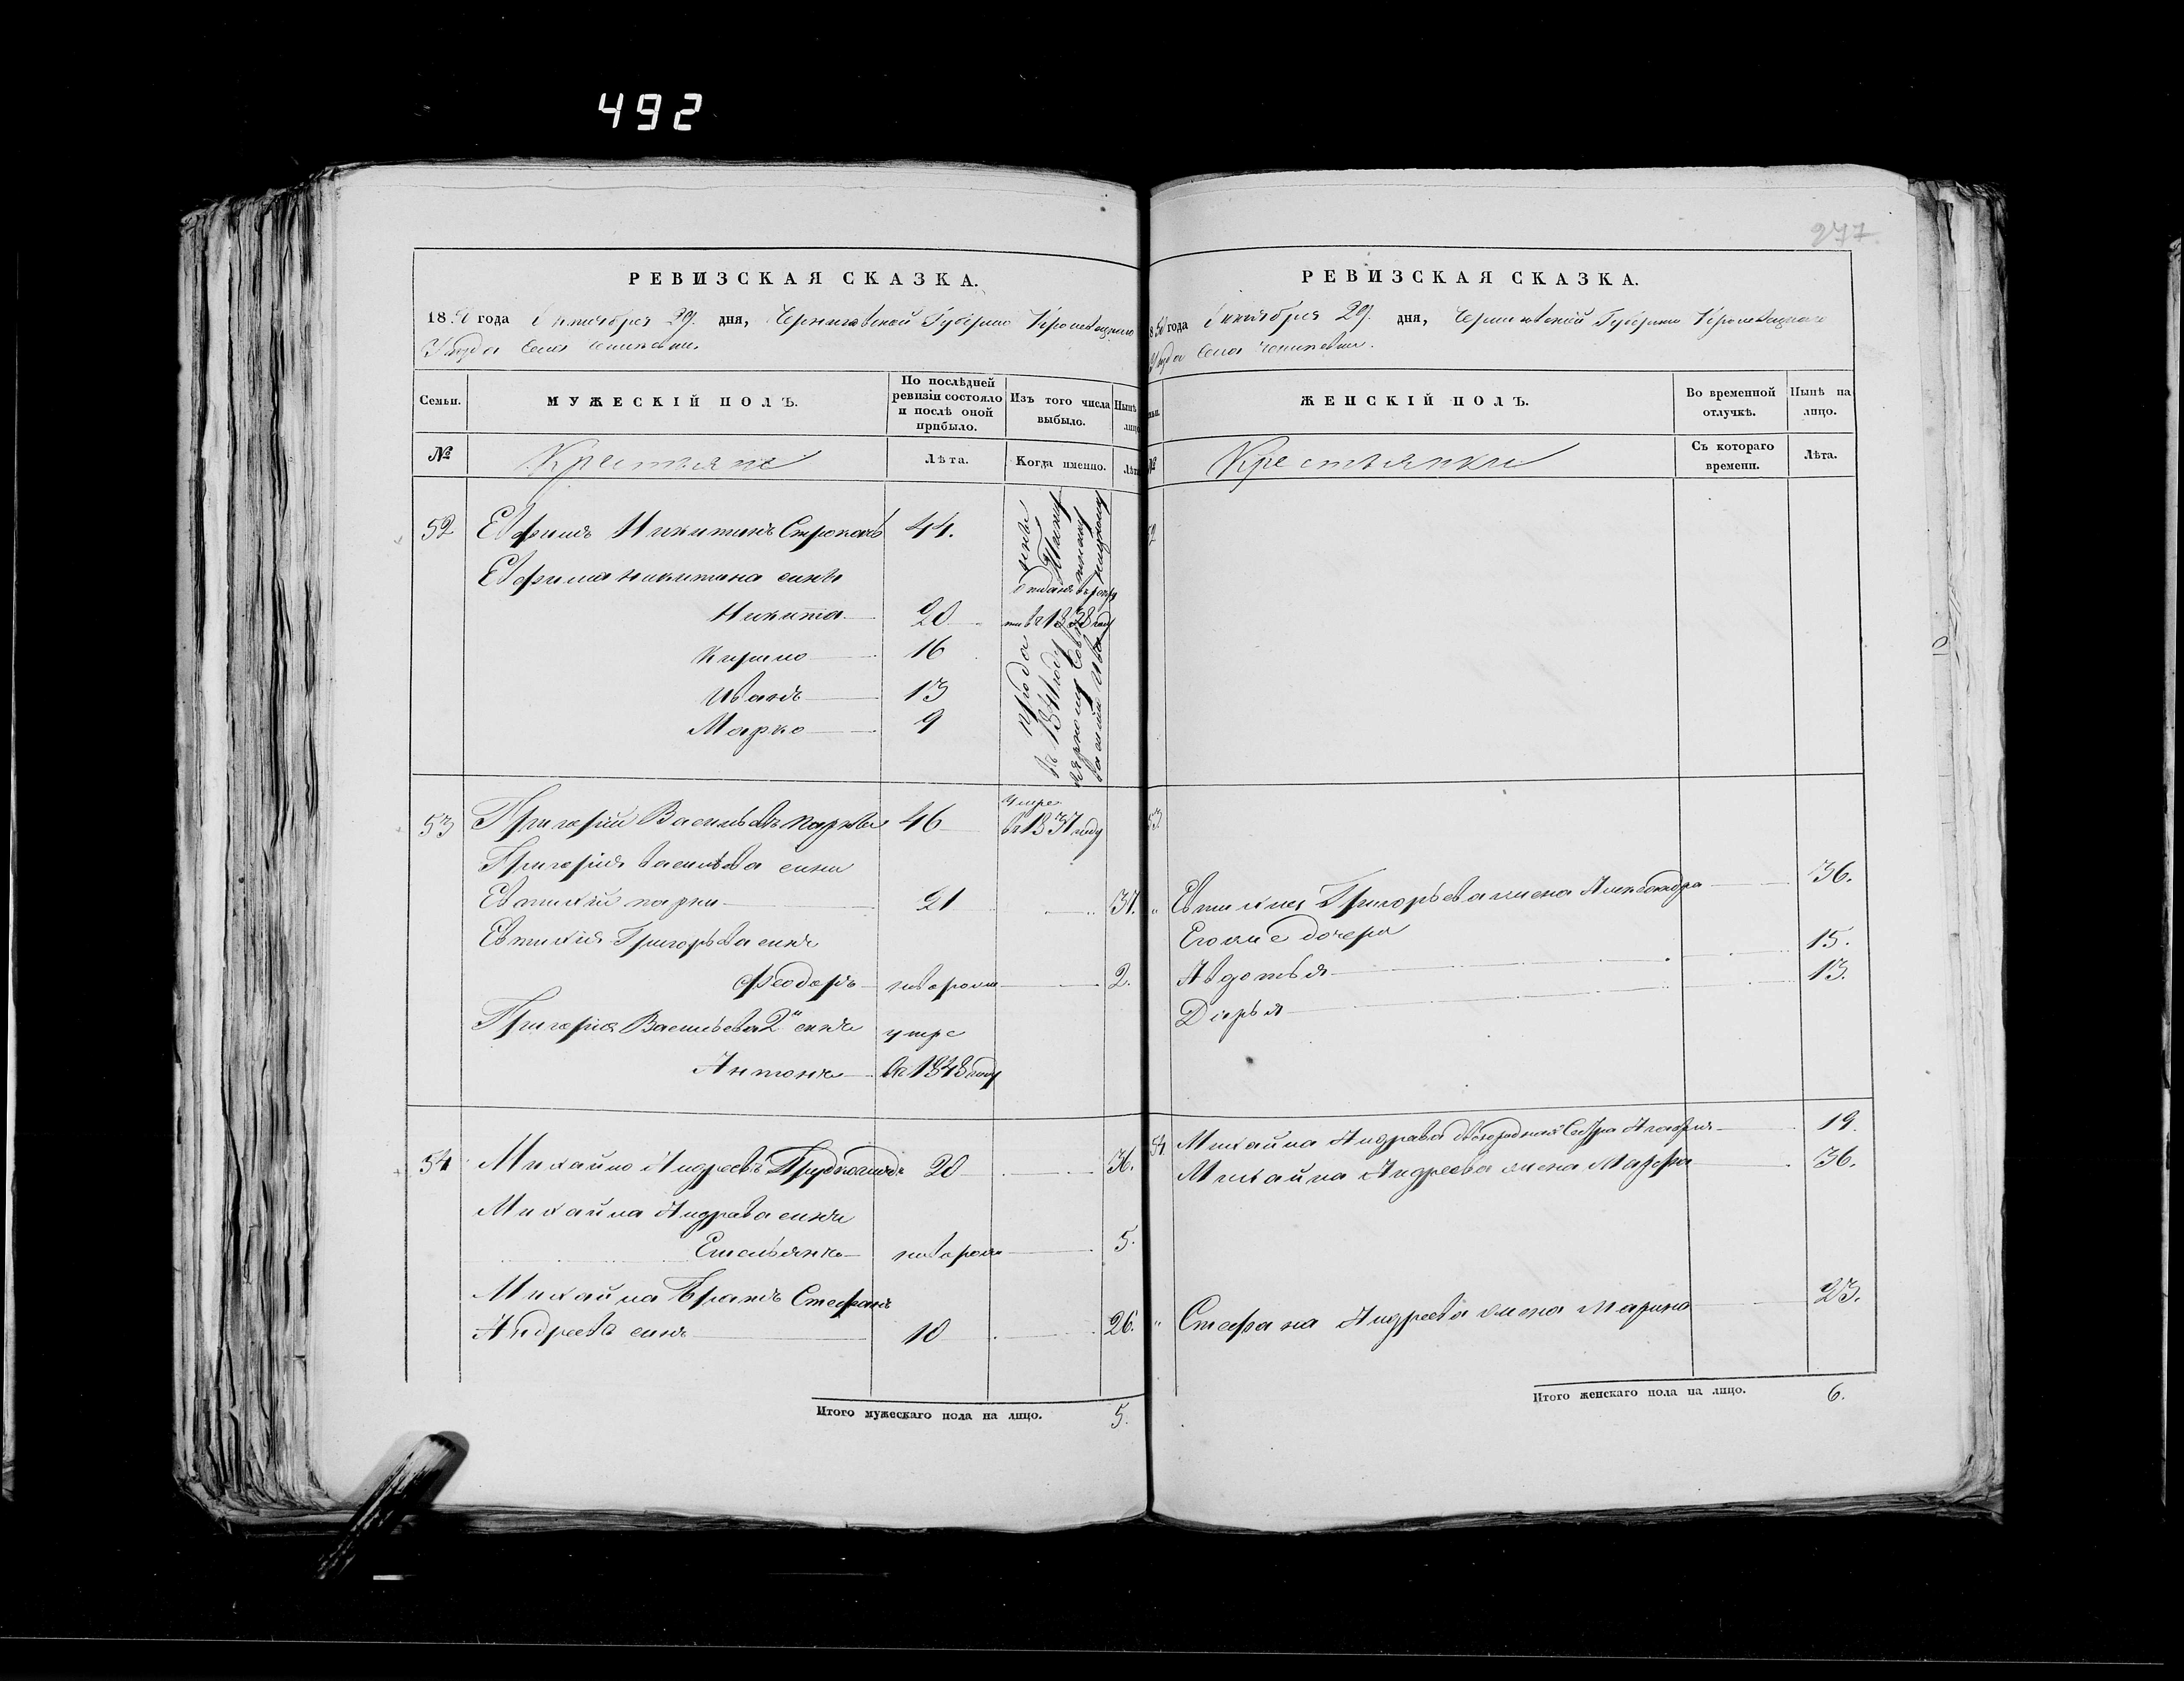 492
277.
РЕВИЗСКАЯ СКАЗКА.
1850 года Октября 29. дня, Черниговской Губернии Кролевецкаго
Уезда Села
Семьи.
МУЖЕСКІЙ ПОЛЪ.
По послѣдней ревизіи состояло и послѣ оной прибыло.
Изъ того числа выбыло.
Нынѣ лицо
№
Крестьяне
Лѣта.
Когда именно.
Лѣта
52 Евфимъ Никитинъ 44.
Евфима Никитина сыны
Никита 20 въ 1838 году
Кирило 16
Иванъ 13
Марко 9
въ 1841 году
53 Григорій Васильевъ 46 умре въ 1837 году
Григорія Васильева сыны
Евтихій 21 37.
Евтихія Григорьева сынъ
Феодоръ новорожд 2.
Григорія Васильева 2й сынъ умре
Антонъ въ 1848 году
54 Михайло Андреевъ 20 36.
Михайла Андреева сынъ
Емельянъ новорожд 5.
Михайла Братъ Стефанъ
Андреевъ сынъ 10 26.
Итого мужескаго пола на лицо. 5.
РЕВИЗСКАЯ СКАЗКА.
1850 года Октября 29. дня, Черниговской Губернии Кролевецкаго
Уезда Села
ЖЕНСКІЙ ПОЛЪ.
Во временной отлучкѣ.
Нынѣ на лицо.
№
Крестьянки
Съ котораго времени.
Лѣта.
52
53
Евтихія Григорьева жена Александра 36.
Его же дочери
Авдотья 15.
Дарья 13.
54 Михайла Андреева двоюродная Сестра 19.
Михайла Андреева жена Марфа 36.
Стефана Андреева жена Марина 23.
Итого женскаго пола на лицо. 6.